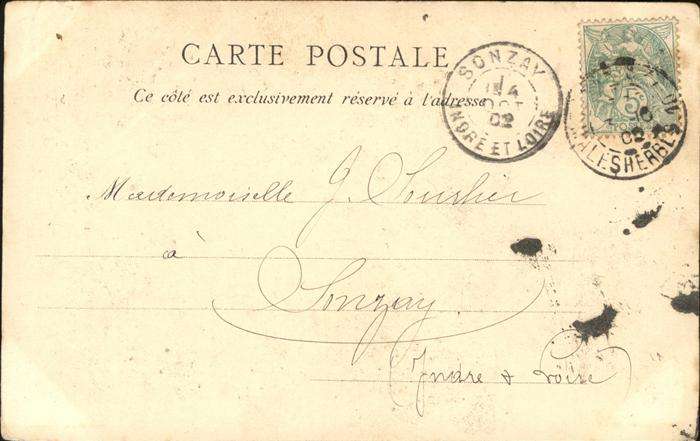 CARTE POSTALE
Ce côté est exclusivement réservé à l'adresse
SONZAY
14
OCT
02
INDRE ET LOIRE
5
02
MALESHERBES
Mademoiselle J.
à
Sonzay
(Indre & Loire)